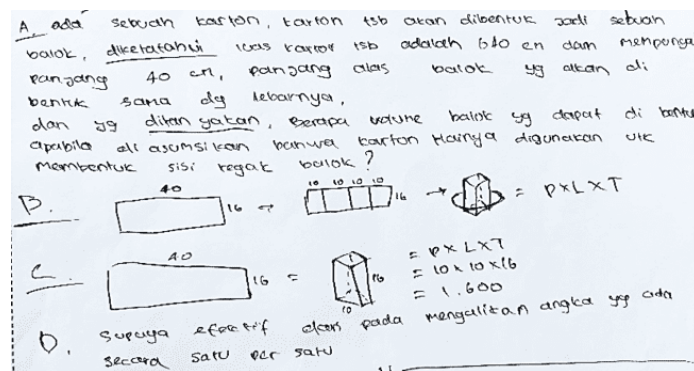 A. ada sebuah karton, karton tsb akan dibentuk jadi sebuah
balok, diketatahui luas karton tsb adalah 640 cm dan mempunya
panjang 40 cm, panjang alas balok yg akan di
bentuk sama dg lebarnya,
dan yg ditanyakan, Berapa volume balok yg dapat di bentu
apabila di asumsikan bahwa karton Hainya digunakan utk
membentuk sisi tegak balok?
B. 40 16 → 10 10 10 10 16 → = P x L x T
C. 40 16 = 16 10 = P x L x T
= 10 x 10 x 16
= 1.600
D. Supaya efektif dari pada mengalikan angka yg ada
secara satu per satu